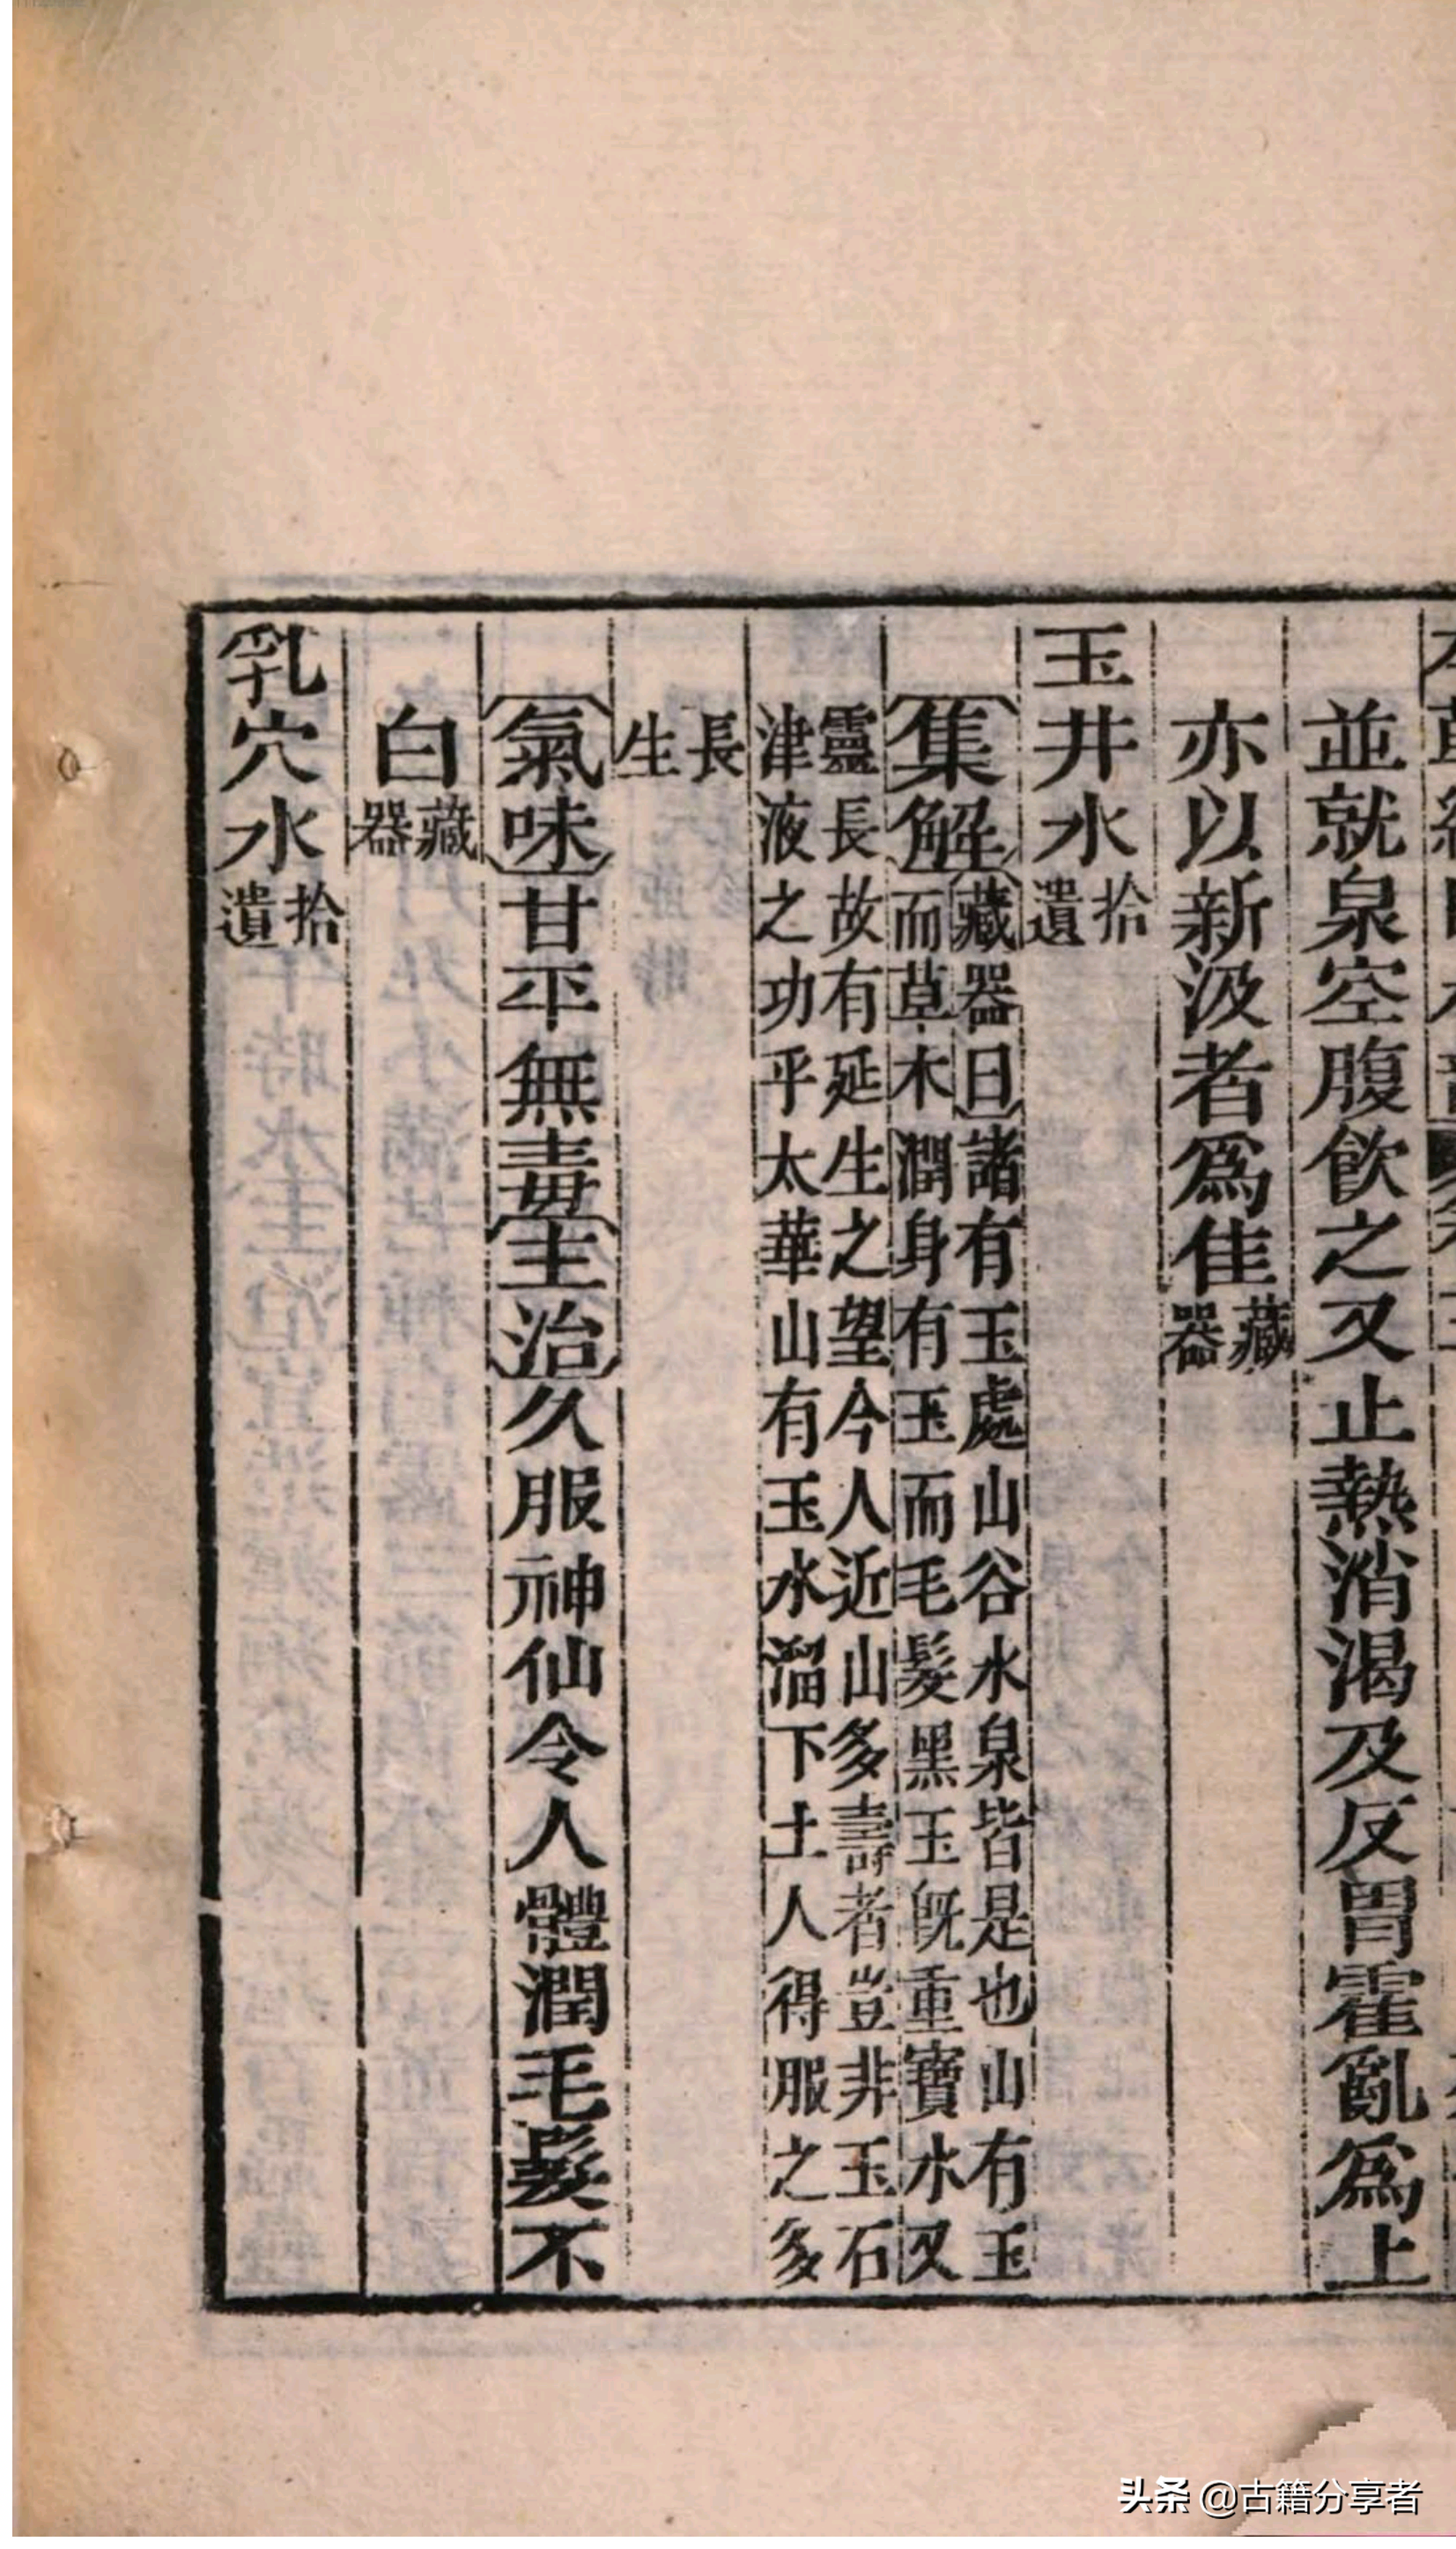 並就泉空腹飲之又止熱消渴及反胃霍亂爲上
亦以新汲者爲佳藏器
玉井水拾遺
集解藏器曰諸有玉處山谷水泉皆是也山有玉
而草木潤身有玉而毛髮黑玉既重寶水又
靈長故有延生之望今人近山多壽者豈非玉石
津液之功乎太華山有玉水溜下土人得服之多
長生
氣味甘平無毒主治久服神仙令人體潤毛髮不
白藏器
乳穴水拾遺
头条 @古籍分享者